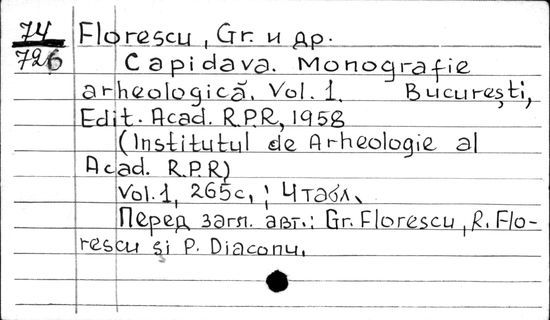 74 Florescu, Gr. и др.
726 Capidava. Monografie
arheologică. Vol. 1. Bucureşti,
Edit. Acad. R.P.R, 1958
(Institutul de Arheologie al
Acad. R.P.R)
Vol. 1, 265с, ; 4 табл.
Перед загл. авт.: Gr. Florescu, R. Flo-
rescu şi P. Diaconu.